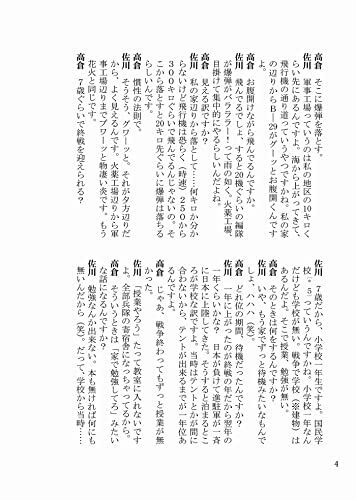 高倉　そこに爆弾を落とす。
佐川　軍事工場っていうのは私の地区の９キロく
らい先にあるんですよ。海から上がってきて、
飛行機の通り道っていうやつですかね。私の家
の辺りからB－29がグーッとお腹開くんです
よ。
高倉　お腹開けながら飛んでるんですか。
佐川　飛んでるでしょ、すると20機ぐらいの編隊
が爆弾がバラララー！って雨の如く、火薬工場、
目掛けて集中的にやるらしいんだよね。
高倉　見える訳ですか？
佐川　私の家辺りから落として……何キロか分か
らないけど飛行機は恐らく（時速）250から
300キロぐらいで飛んでるんじゃないの。そ
こから落とすと20キロ先ぐらいに爆弾は落ちる
らしいんです。
高倉　慣性の法則で。
佐川　そうそう、グワーッと。それが夕方辺りだ
から、よく見えるんです。火薬工場辺りから軍
事工場辺りまでブワーッと物凄い炎です。もう
花火と同じです。
高倉　７歳ぐらいで終戦を迎えられる？
佐川　７歳だから、小学校一年生ですよ。国民学
校。５つぐらいですかね。私、小学校一年なん
だけども学校が無い。戦争で学校（※建物）は
あるんだよ。そこで授業、勉強が無い。
高倉　そのときは何をするんですか？
佐川　いや、もう家でずっと待機みたいなもんで
しょ、ハハ（笑）。
高倉　どれ位の期間、待機だったんですか？
佐川　一年に上がったのが終戦の年だから翌年の
一年くらいかな？　日本が負けて進駐軍が一斉
に日本に上陸してきた。そうすると泊まるとこ
ろが学校な訳ですよ。当時はテントとかが間に
合わないから、テントが出来るまで一年位あ
るんですよ。
高倉　じゃあ、戦争終わってもずっと授業が無
かった。
佐川　「授業やろう」たって教室に入れないです
よ。全部兵隊の寄宿舎になっちゃってるから。
高倉　そういうときは「家で勉強してろ」みたい
な話になるんですか？
佐川　勉強なんか出来ない。本も無ければ何にも
無いんだから（笑）。だって、学校から当時……
4